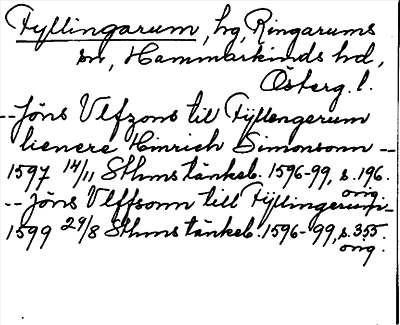 Fyllingarum, hg, Ringarums
sn, Hammarkinds hd,
Österg. l.
--Jöns Ulfzons til Fÿllengerum
lienere Hinrich Simonsonn --
1597 14/11 Sthms tänkeb. 1596-99, s. 196.
orig.
-- Jöns Ulffsonn till Fÿllingerum--
1599 29/8 Sthms tänkeb. 1596-99, s. 355.
orig.